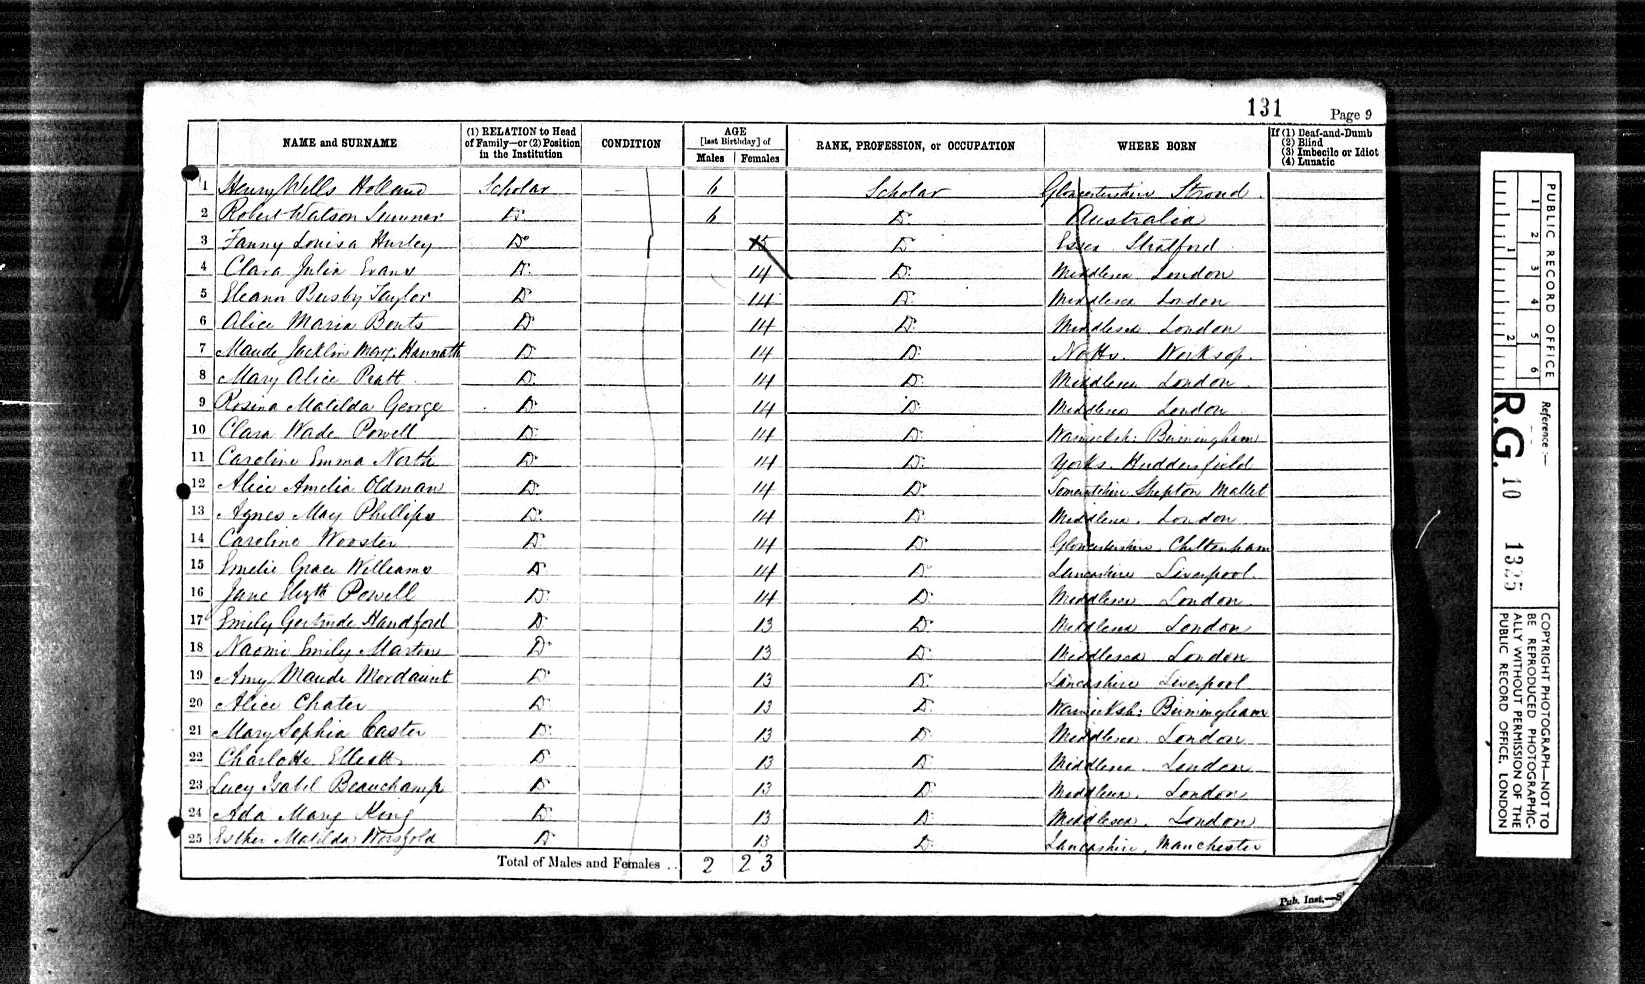 131
Page 9
NAME and SURNAME
(1) RELATION to Head of Family—or (2) Position in the Institution
CONDITION
AGE [last Birthday] of
Males
Females
RANK, PROFESSION, or OCCUPATION
WHERE BORN
If (1) Deaf-and-Dumb
(2) Blind
(3) Imbecile or Idiot
(4) Lunatic
1 Henry Wells Holland Scholar 6 Scholar Gloucestershire Stroud
2 Robert Watson Sumner Do 6 Do Australia
3 Fanny Louisa Hurley Do 15 Do Essex Stratford
4 Clara Julia Evans Do 14 Do Middlesex London
5 Eleanor Busby Taylor Do 14 Do Middlesex London
6 Alice Maria Bonts Do 14 Do Middlesex London
7 Maude Jacklin Mary Hannath Do 14 Do Notts. Worksop.
8 Mary Alice Pratt Do 14 Do Middlesex London
9 Rosina Matilda George Do 14 Do Middlesex London
10 Clara Wade Powell Do 14 Do Warwicksh: Birmingham
11 Caroline Emma North Do 14 Do Yorks. Huddersfield
12 Alice Amelia Oldman Do 14 Do Somersetshire Shepton Mallet
13 Agnes May Phillips Do 14 Do Middlesex. London
14 Caroline Wooster Do 14 Do Gloucestershire. Cheltenham
15 Emelie Grace Williams Do 14 Do Lancashire Liverpool.
16 Jane Elizth Powell Do 14 Do Middlesex London
17 Emily Gertrude Handford Do 13 Do Middlesex London
18 Naomi Emily Martin Do 13 Do Middlesex London
19 Amy Maude Mordaunt Do 13 Do Lancashire Liverpool
20 Alice Chater Do 13 Do Warwicksh: Birmingham
21 Mary Sophia Caster Do 13 Do Middlesex London
22 Charlotte Elliott Do 13 Do Middlesex London
23 Lucy Isabel Beauchamp Do 13 Do Middlesex. London
24 Ada Mary King Do 13 Do Middlesex. London
25 Esther Matilda Worsfold Do 13 Do Lancashire, Manchester
Total of Males and Females .. 2 23
Pub. Inst.—S
PUBLIC RECORD OFFICE
1 2 3 4 5 6
1 2
Reference:—
R.G. 10 1325
COPYRIGHT PHOTOGRAPH—NOT TO
BE REPRODUCED PHOTOGRAPHIC-
ALLY WITHOUT PERMISSION OF THE
PUBLIC RECORD OFFICE, LONDON